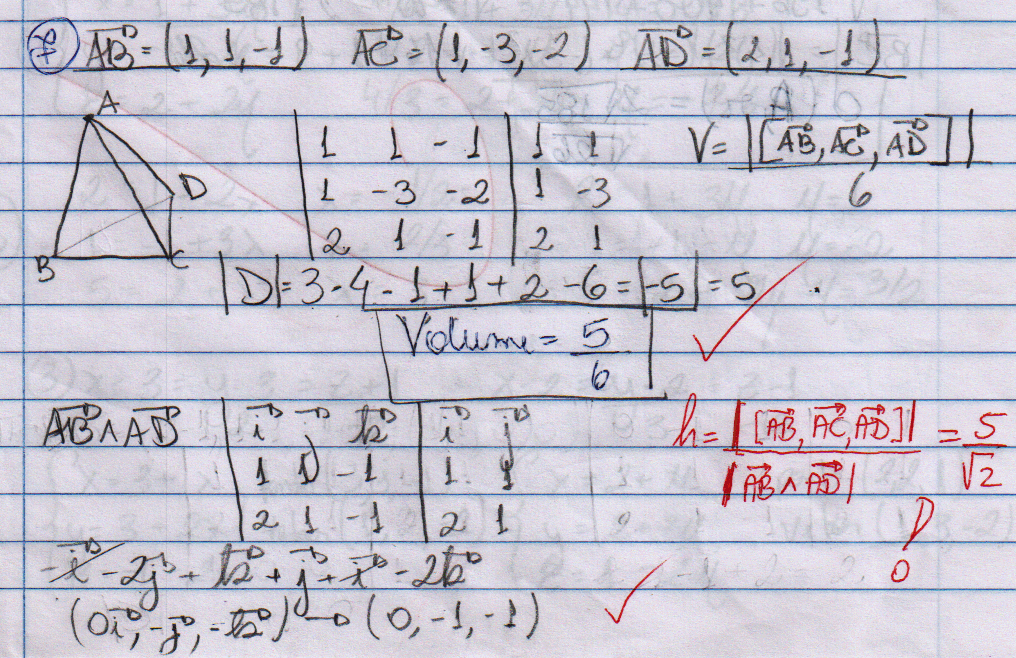 7) AB = (1, 1, -1) AC = (1, -3, -2) AD = (2, 1, -1)
A
D
B C
| 1 1 -1 | 1 1
| 1 -3 -2 | 1 -3
| 2 1 -1 | 2 1
V = |[AB, AC, AD]| / 6
|D| = 3 - 4 - 1 + 1 + 2 - 6 = |-5| = 5 ✓
Volume = 5/6
AB ∧ AD | i j k | i j
| 1 1 -1 | 1 1
| 2 1 -1 | 2 1
h = |[AB, AC, AD]| / |AB ∧ AD| = 5/√2
-i - 2j + k + j + i - 2k
(0i, -j, -k) → (0, -1, -1) ✓